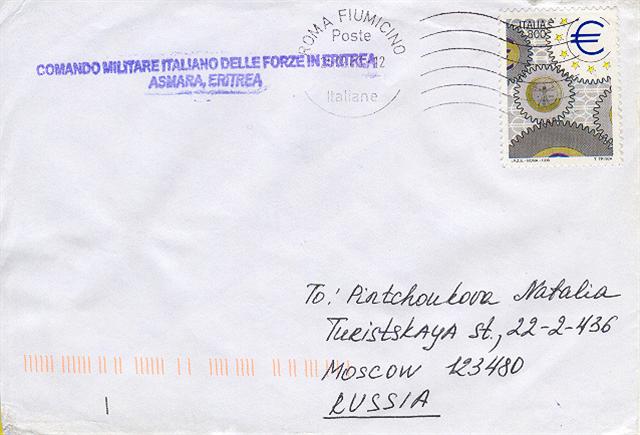 COMANDO MILITARE ITALIANO DELLE FORZE IN ERITREA
ASMARA, ERITREA
ROMA FIUMICINO
Poste
12
Italiane
ITALIA
800
€
To: Pintchoukova Natalia
Turistskaya st., 22-2-436
Moscow 123480
RUSSIA